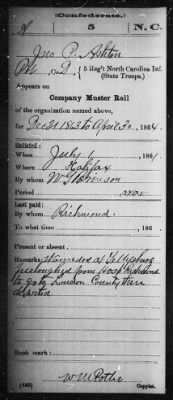 (Confederate.)
5 N.C.
Jno P. Ashton
Pt D, 5 Reg't North Carolina Inf.
(State Troops.)
Appears on
Company Muster Roll
of the organization named above,
for Dec 31 1863 to April 30, 1864.
Enlisted:
When July 1, 1861
Where Halifax
By whom
Period war
Last paid:
By whom Richmond
To what time , 186
Present or absent
Remarks: Wounded at Gettysburg
furloughed from hosp Richmond
to go to Loudon County there
deserted
Book mark:
(642) Copyist.